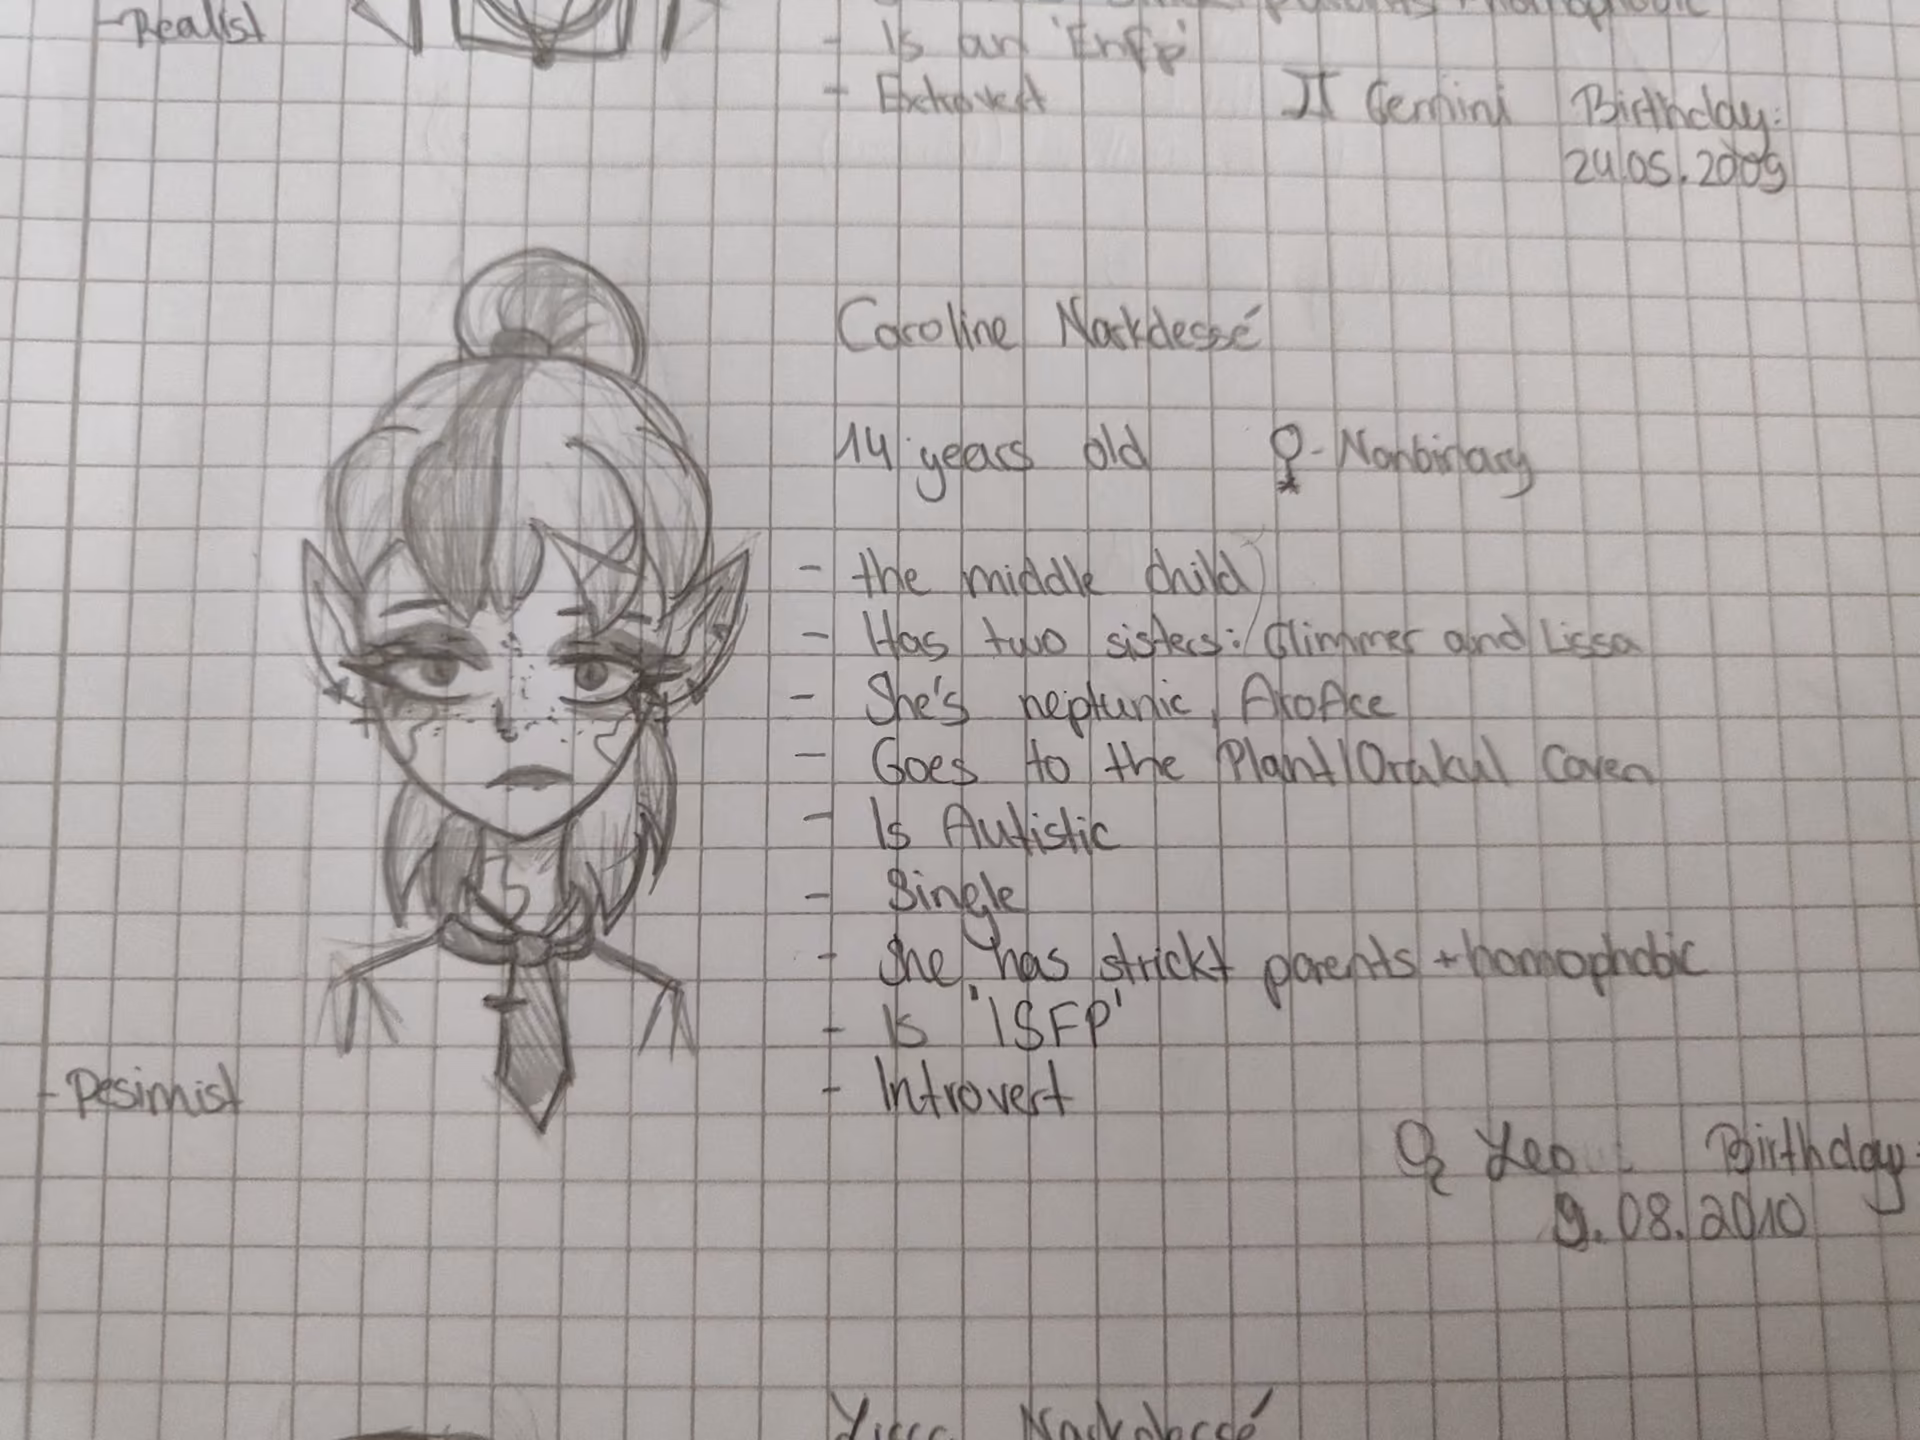 - Realist
parents + homophobic
- Is an 'Enfp'
- Extrovert
♊ Gemini Birthday:
24.05.2009
Caroline Narkdessé
14 years old ♀- Nonbinary
- the middle child
- Has two sisters: Glimmer and Lissa
- She's neptunic, AroAce
- Goes to the Plant/Orakul Coven
- Is Autistic
- Single
- She has strickt parents + homophobic
- Is 'ISFP'
- Introvert
- Pesimist
♌ Leo Birthday:
9.08.2010
Lissa Narkdessé